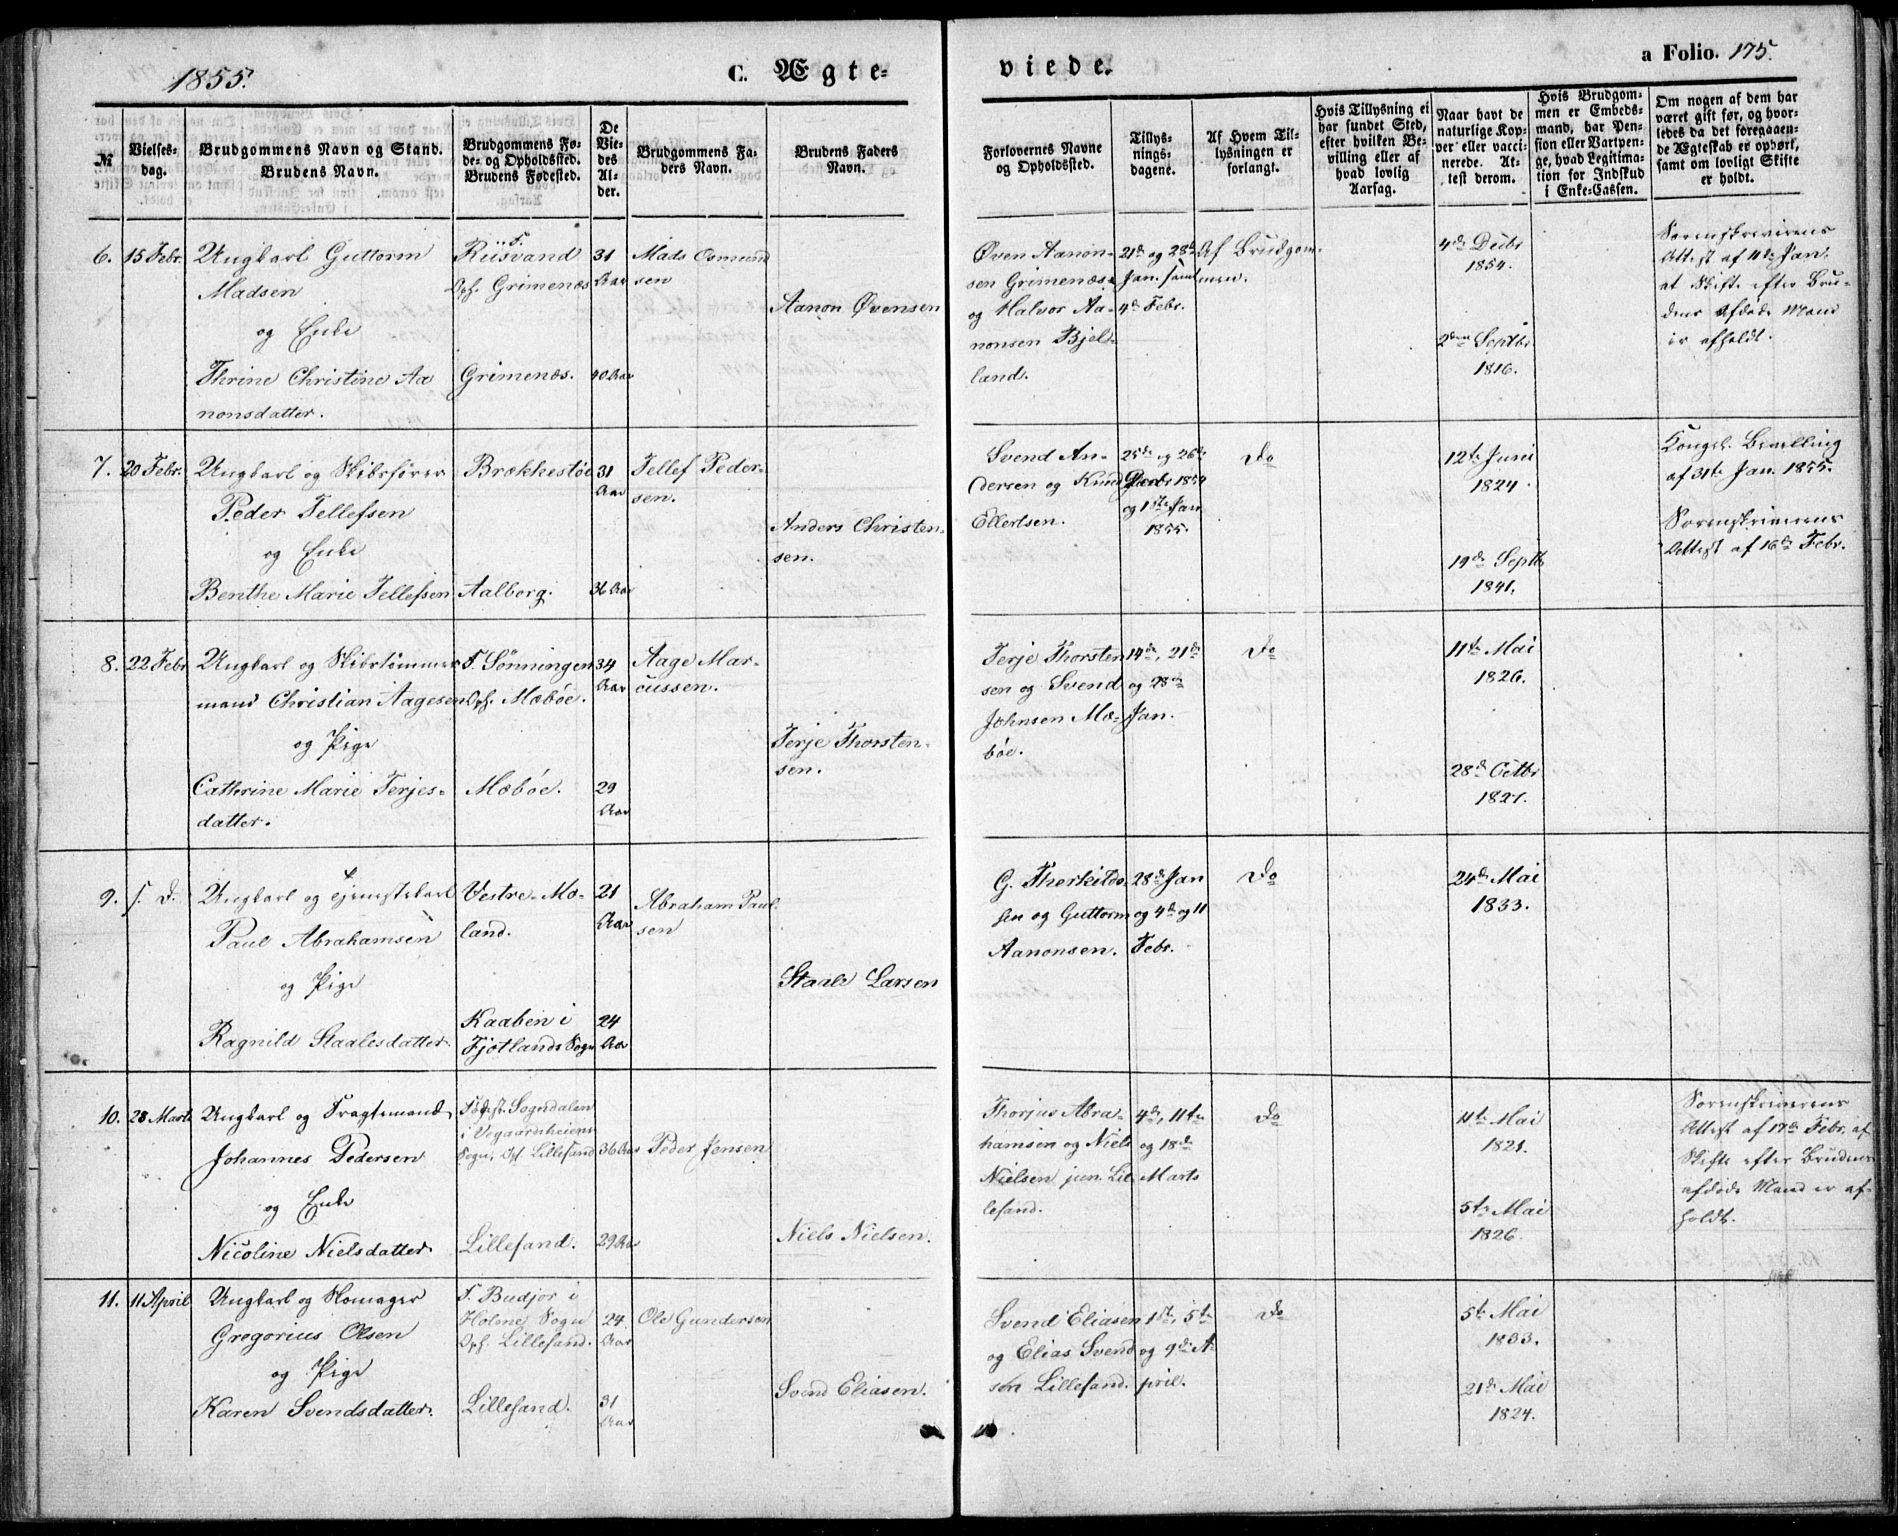 1855.
C. Ægte-
viede.
a Folio. 175.
№
Vielses-
dag.
Brudgommens Navn og Stand.
Brudens Navn.
Brudgommens Fø-
de- og Opholdssted.
Brudens Fødested.
De
Vie-
des
Al-
der.
Brudgommens Fa-
ders Navn.
Brudens Faders
Navn.
Forlovernes Navne
og Opholdssted.
Tillys-
nings-
dagene.
Af Hvem Til-
lysningen er
forlangt.
Hvis Tillysning ei
har fundet Sted,
efter hvilken Be-
villing eller af
hvad lovlig
Aarsag.
Naar havt de
naturlige Kop-
per eller vacci-
nerede. At-
test derom.
Hvis Brudgom-
men er Embeds-
mand, har Pen-
sion eller Vartpen-
ge, hvad Legitima-
tion for Indskud
i Enke-Cassen.
Om nogen af dem har
været gift før, og hvor-
ledes da det foregaaen-
de Ægteskab er ophört,
samt om lovligt Skifte
er holdt.
6.
15 Febr.
Ungkarl Guttorm
Madsen
og Enke
Thrine Christine Aa
nonsdatter.
F.
Riisvand
Oph. Grimenæs
Grimenæs.
31
Aar
40 Aar
Mads Osmund
sen
Aanon Øvensen
Øven Aanon-
sen Grimenæs
og Halvor Aa-
nonsen Bjel-
land.
21de og 28de
Jan. samt
4de Febr.
Af Brudgom-
men.
4de Decbr
1854.
2den Septbr
1816.
Sorenskriverens
Attest af 11te Jan.
at Skifte efter Bru-
dens afdøde Mand
er afholdt.
7.
20 Febr.
Ungkarl og Skibsfører
Peder Tellefsen
og Enke
Benthe Marie Tellefsen
Brækkestøe
Aalborg.
31
Aar
36 Aar
Tellef Peder-
sen.
Anders Christen-
sen.
Svend An-
dersen og Knud
Ellertsen.
25de og 26de
Decbr 1854
og 1ste Jan.
1855.
Do
12te Juni
1824.
19de Septb
1841.
Kongel. Bevilling
af 31te Jan. 1855.
Sorenskriverens
Attest af 16de Febr.
8.
22 Febr
Ungkarl og Skibstømmer
mand Christian Aagesen
og Pige
Cathrine Marie Terjes-
datter.
F. Sønningen
Oph. Mæbøe.
Mæbøe.
34
Aar
29
Aar
Aage Mar-
cussen.
Terje Thorsten-
sen.
Terje Thorsten
sen og Svend
Johnsen Mæ-
bøe.
14de, 21de
og 28de
Jan.
Do
11te Mai
1826.
28de Octbr
1827.
9.
s. D.
Ungkarl og Tjenestekarl
Paul Abrahamsen
og Pige
Ragnild Staalesdatter
Vestre-Mo-
land.
Kaaben i
Fjotlands Sogn
21
Aar
24
Aar
Abraham Paul-
sen
Staale Larsen
G. Therkilds-
sen og Guttorm
Aanonsen.
28de Jan
og 4de og 11
Febr.
Do
24de Mai
1833.
10.
28 Marts
Ungkarl og Fragtemand
Johannes Pedersen
og Enke
Nicoline Nielsdatter
Fødest. Sogndalen
i Vegaardsheiens
Sogn, Oph. Lillesand
Lillesand.
36 Aar
29 Aar
Peder Jensen
Niels Nielsen.
Thorjus Abra-
hamsen og Niels
Nielsen jun. Lil-
lesand.
4de, 11te
og 18de
Marts
Do
11te Mai
1821.
5te Mai
1826.
Sorenskriverens
Attest af 17de Febr. at
Skifte efter Brudens
afdøde Mand er af-
holdt.
11.
11 April
Ungkarl og Skomager
Gregorius Olsen
og Pige
Karen Svendsdatter.
F. Budjor i
Holme Sogn
Oph. Lillesand.
Lillesand.
24
Aar
31
Aar
Ole Gundersen
Svend Eliasen.
Svend Eliasen
og Elias Svend
sen Lillesand.
1ste, 5te
og 9de A-
pril.
Do
5te Mai
1833.
21de Mai
1824.